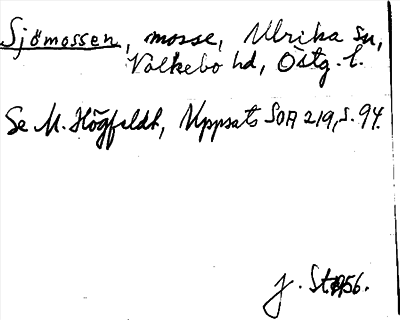 Sjömossen, mosse, Ulrika sn,
Valkebo hd, Östg. l.
Se M. Högfeldt, Uppsats SOA 219, s. 94.
J. St 1956.